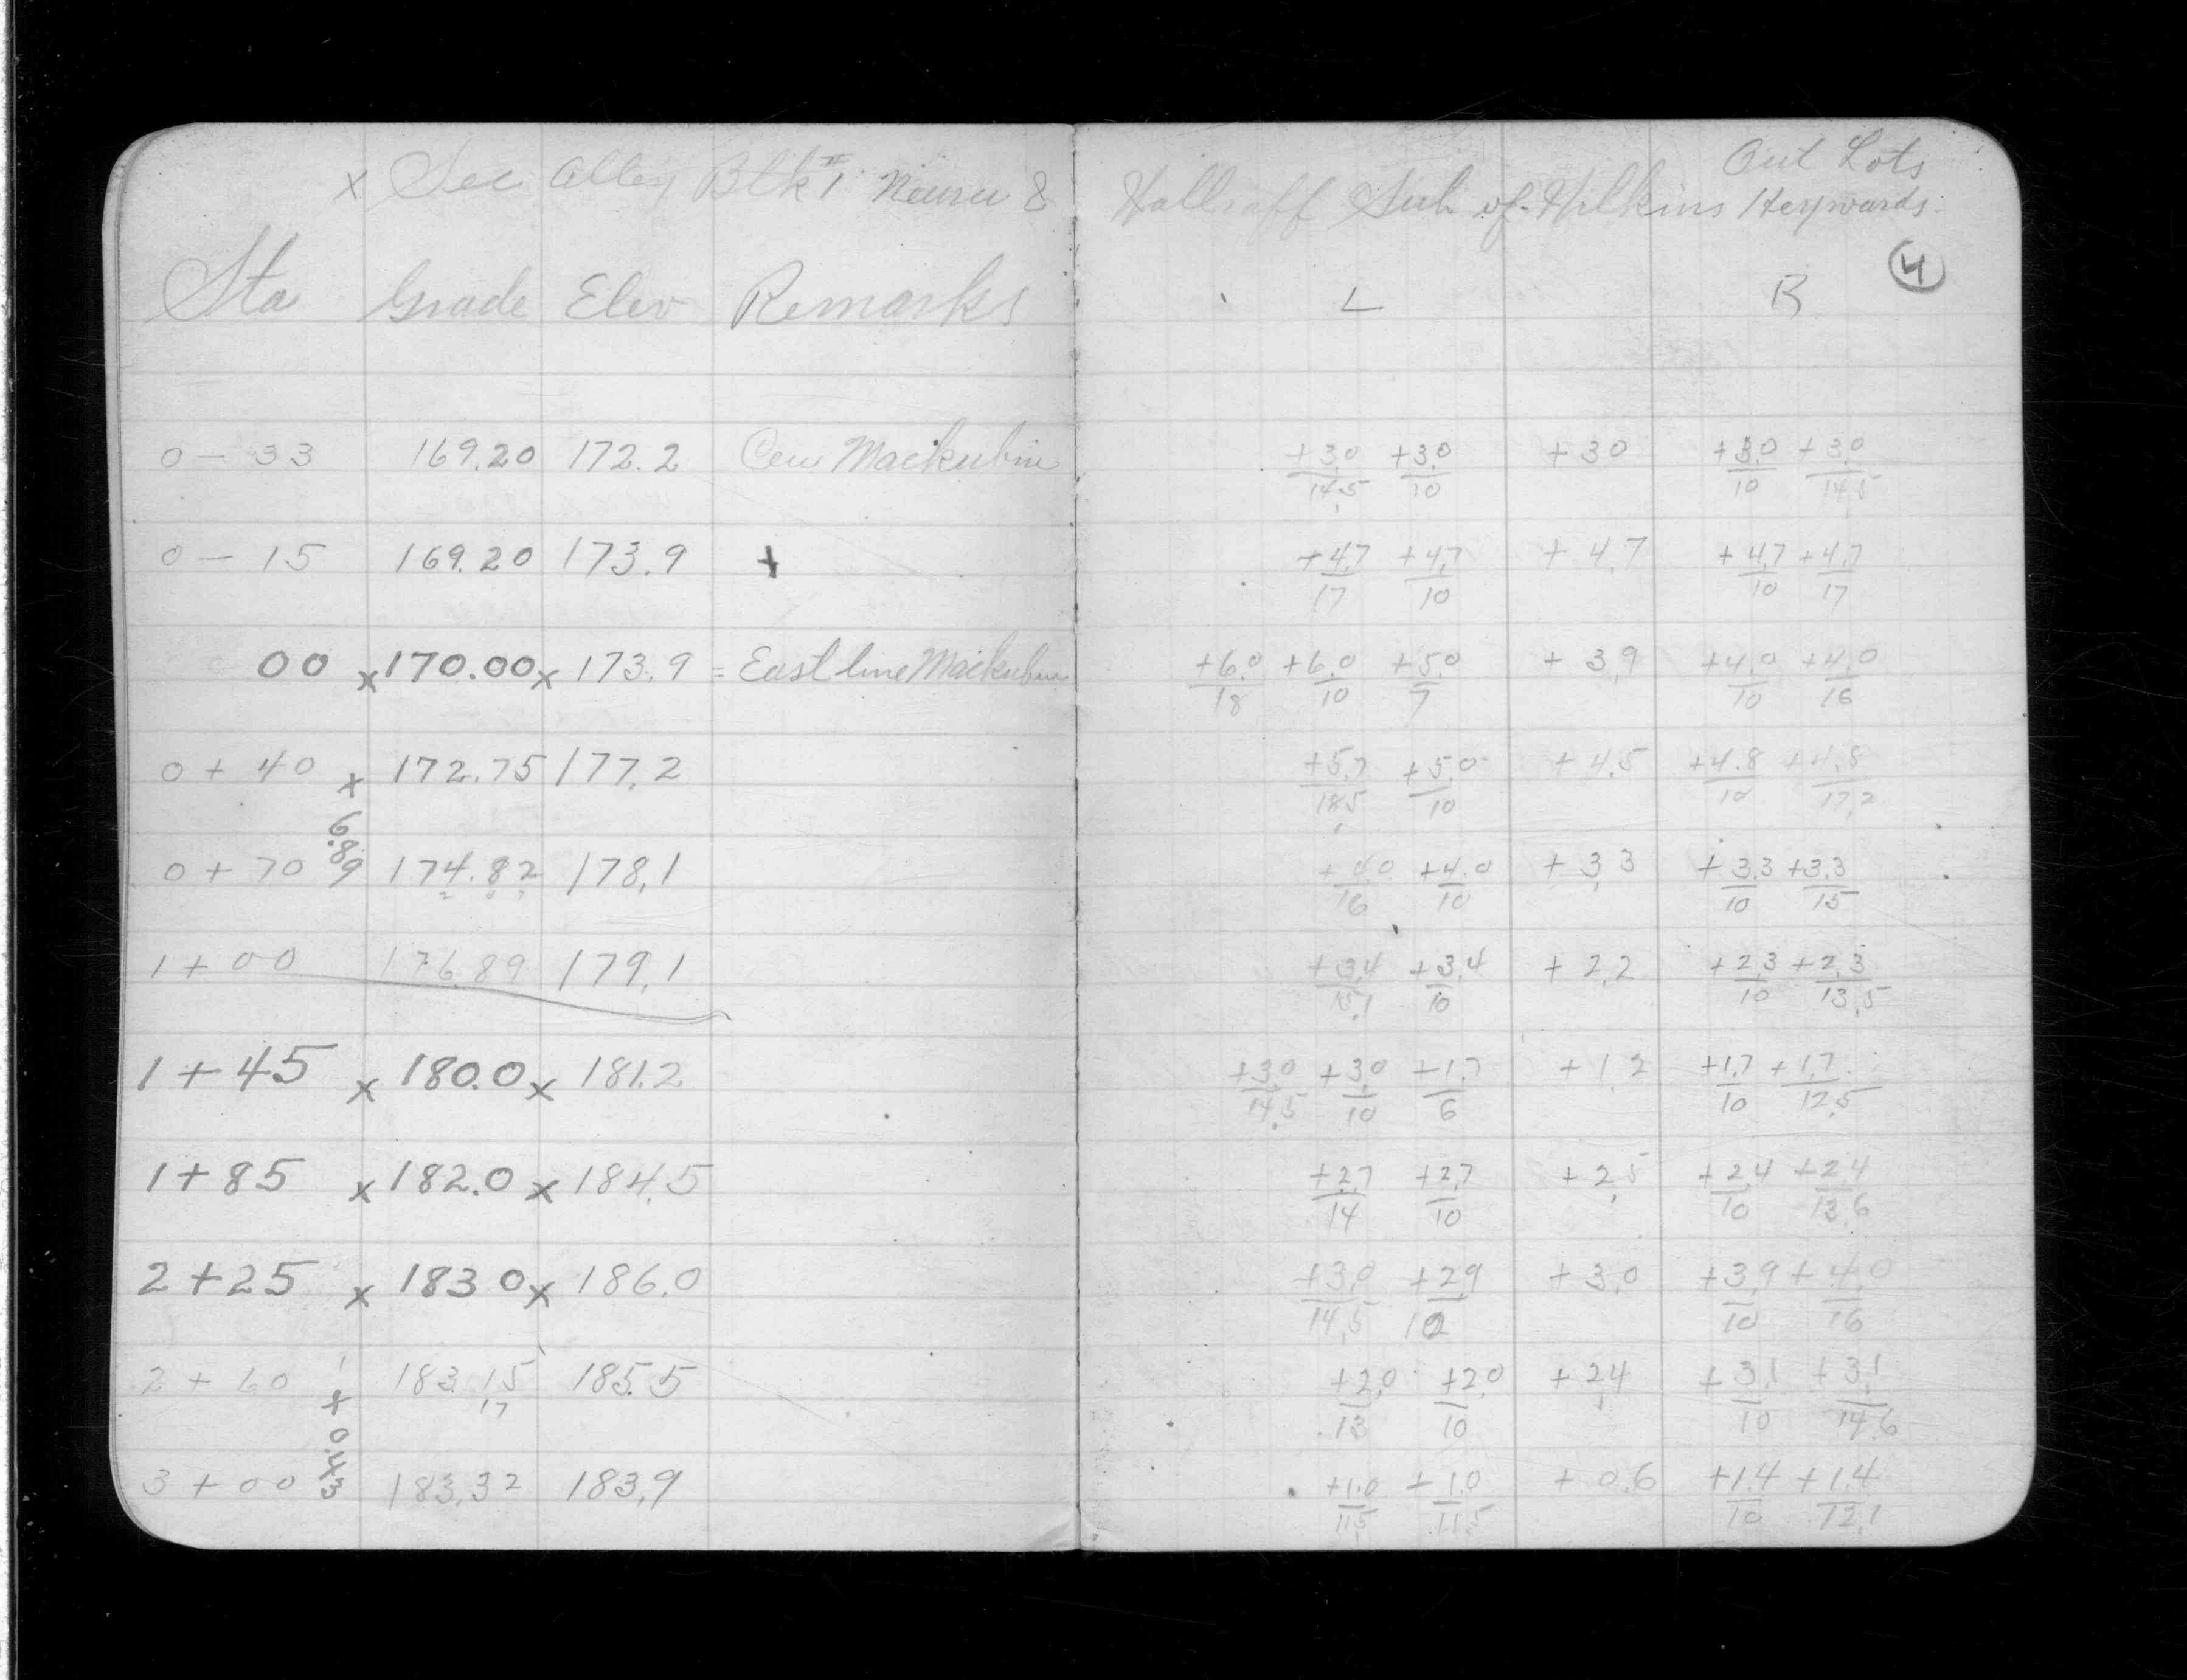 x Sec Alley Blk #1 & Sub of Out Lots
Sta Grade Elev Remarks L R 4
0 - 33 169.20 172.2 Cen Mackubin +3.0/14.5 +3.0/10 +3.0 +3.0/10 +3.0/14.5
0 - 15 169.20 173.9 + +4.7/17 +4.7/10 +4.7 +4.7/10 +4.7/17
00 x 170.00 x 173.9 = East line Mackubin +6.0/18 +6.0/10 +5.0/7 +3.9 +4.0/10 +4.0/16
0 + 40 x 172.75 177.2 +5.7/18.5 +5.0/10 +4.5 +4.8/10 +4.8/17.2
6.89
0 + 70 174.82 178.1 +4.0/16 +4.0/10 +3.3 +3.3/10 +3.3/15
1 + 00 176.89 179.1 +3.4/15.1 +3.4/10 +2.2 +2.3/10 +2.3/13.5
1 + 45 x 180.0 x 181.2 +3.0/14.5 +3.0/10 +1.7/6 +1.2 +1.7/10 +1.7/12.5
1 + 85 x 182.0 x 184.5 +2.7/14 +2.7/10 +2.5 +2.4/10 +2.4/13.6
2 + 25 x 183.0 x 186.0 +3.0/14.5 +2.9/10 +3.0 +3.9/10 +4.0/16
2 + 60 x 183.15 185.5 +2.0/13 +2.0/10 +2.4 +3.1/10 +3.1/14.6
17
3 + 00 183.32 183.9 +1.0/11.5 +1.0/11.5 +0.6 +1.4/10 +1.4/12.1